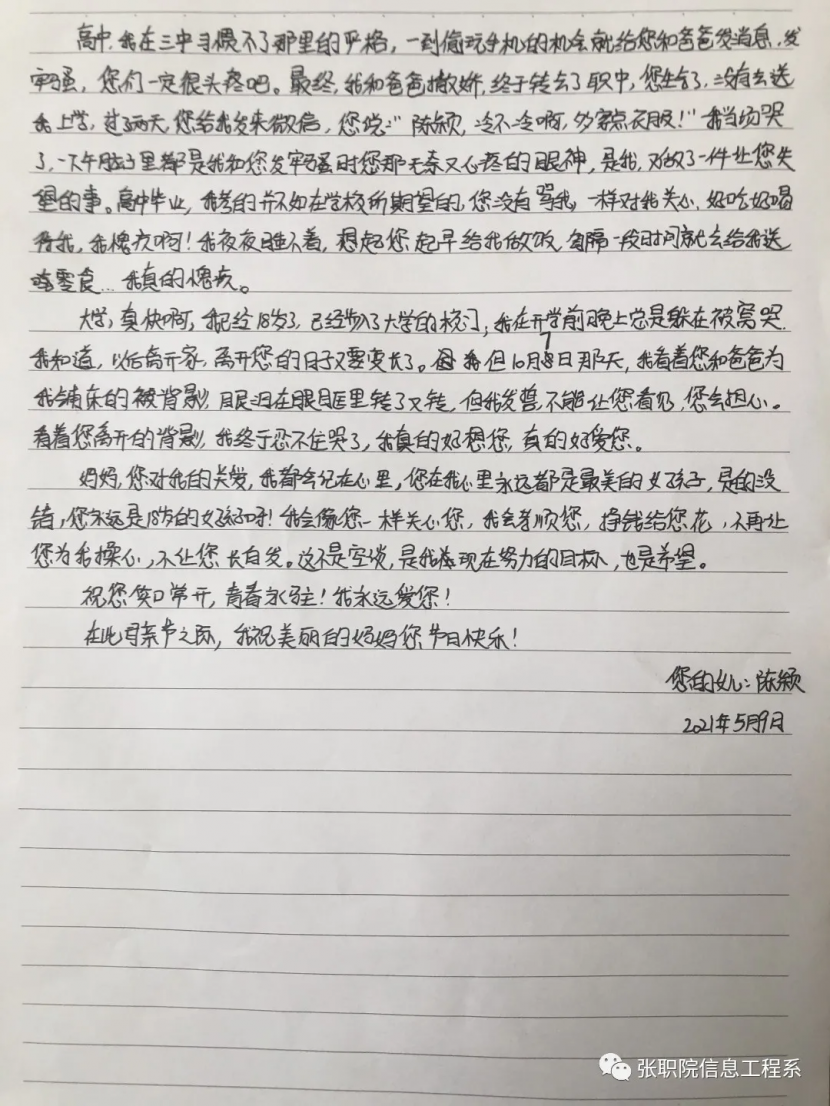 高中，我在三中习惯不了那里的严格，一到偷玩手机的机会就给您和爸爸发消息，发
牢骚，您们一定很头疼吧。最终，我和爸爸撒娇，终于转去了职中，您生气了，没有去送
我上学，过了两天，您给我发来微信，您说：“陈颖，冷不冷啊，多穿点衣服！”我当场哭
了，一下午脑子里都是我和您发牢骚时您那无奈又心疼的眼神，是我，又做了一件让您失
望的事。高中毕业，我考的并不如在学校所期望的，您没有骂我，一样对我关心，好吃好喝
待我，我愧疚啊！我夜夜睡不着，想起您起早给我做饭，每隔一段时间就去给我送
零食…我真的愧疚。
大学，真快啊，我已经18岁了，已经步入了大学的校门，我在开学前晚上总是躲在被窝哭，
我知道，以后离开家，离开您的日子又要变长了。但10月7日那天，我看着您和爸爸为
我铺床的被背影，眼泪在眼眶里转了又转，但我发誓，不能让您看见，您会担心。
看着您离开的背影，我终于忍不住哭了，我真的好想您，真的好爱您。
妈妈，您对我的关爱，我都会记在心里，您在我心里永远都是最美的女孩子，是的没
错，您永远是18岁的女孩子呀！我会像您一样关心您，我会孝顺您，挣钱给您花，不再让
您为我操心，不让您长白发。这不是空谈，是我现在努力的目标，也是希望。
祝您笑口常开，青春永驻！我永远爱您！
在此母亲节之际，我祝美丽的妈妈您节日快乐！
您的女儿：陈颖
2021年5月9日
张职院信息工程系